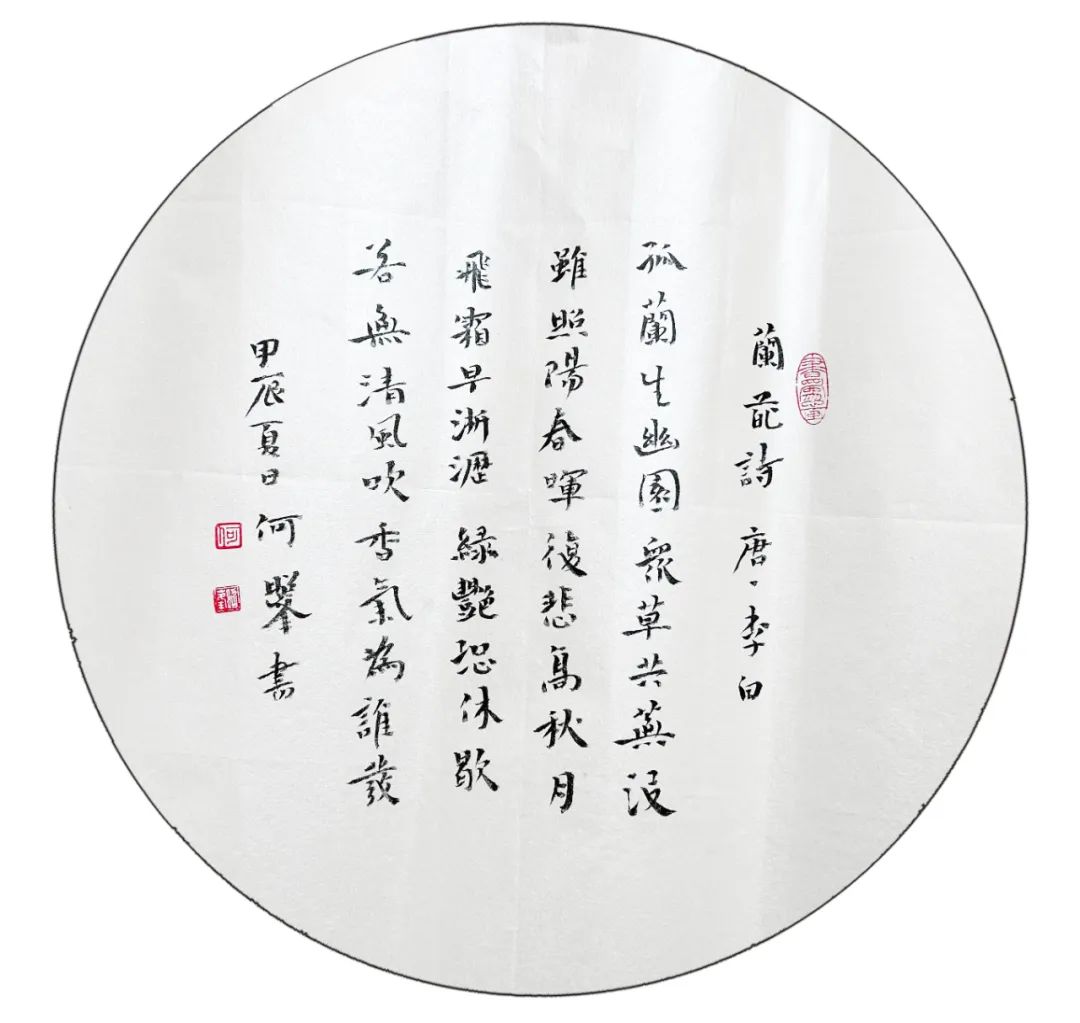 蘭花詩 唐、李白
孤蘭生幽園眾草共蕪沒
雖照陽春暉復悲高秋月
飛霜早淅瀝綠艷恐休歇
若無清風吹香氣為誰發
甲辰夏日何舉書
何